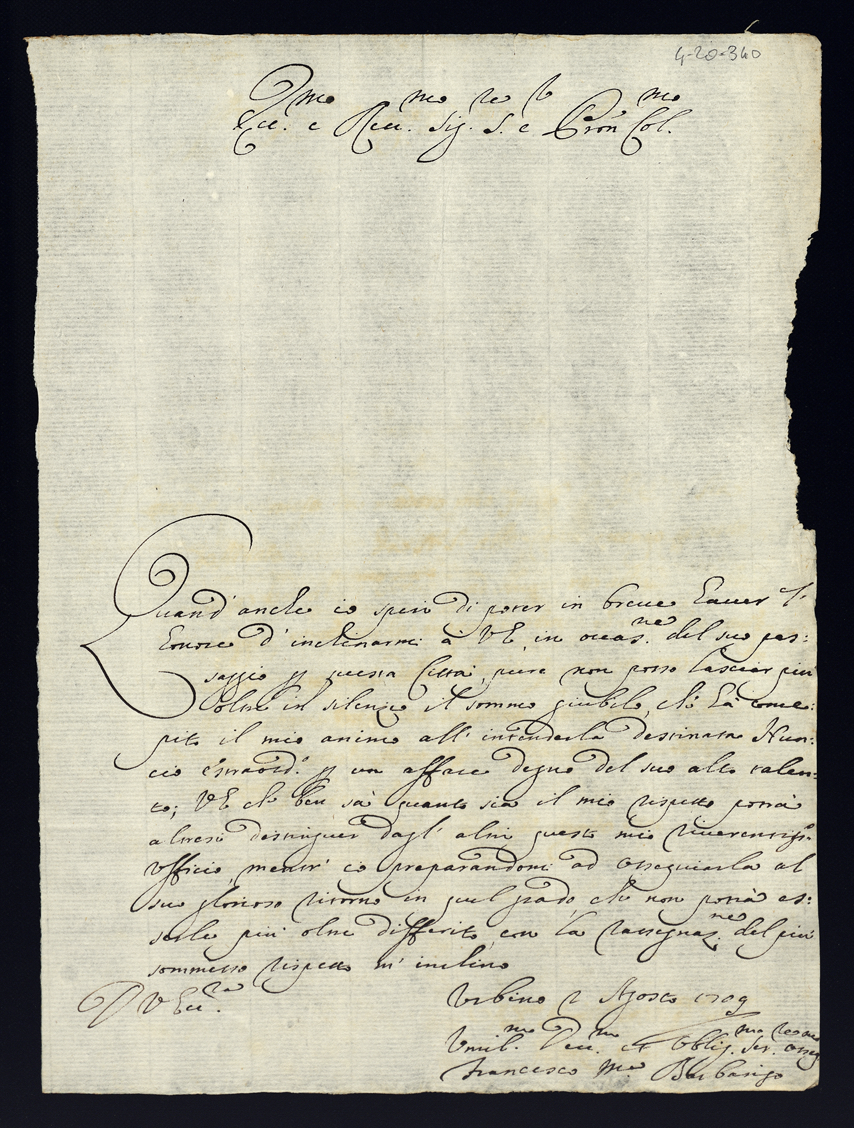 4-20-340
Ecc.mo e Rev.mo Sig.re S.r e Pron Col.mo
Quand' anche io speri di poter in breve haver l'
honore d' inclinarmi à V E, in occas.ne del suo pas:
saggio p questa Città, pure non posso lasciar più
oltre in silenzio il sommo giubilo, ch' hà conce:
pito il mio animo all' intenderla destinata Nun:
cio estraord.o p un affare degno del suo alto talen:
to; V E che ben sà quanto sia il mio rispetto potrà
altresì destinguer dagl' altri questo mio riverentiss.o
ufficio, mentr' io preparandomi ad ossequiarla al
suo glorioso ritorno in quel grado, che non potrà es:
serle più oltre differito, con la rassegnaz.ne del più
sommesso rispetto m' inclino
D V Ecc.za
Urbino 2 Agosto 1709
Umil.mo Dev.mo et Oblig.mo Ser.re osseq.mo
Francesco M.a Barbarigo